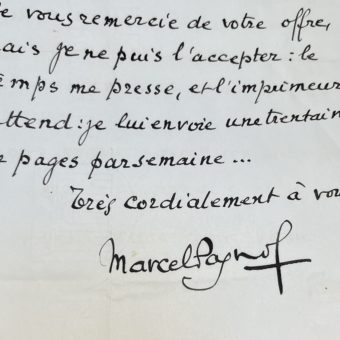 e vous remercie de votre offre,
ais je ne puis l'accepter : le
mps me presse, et l'imprimeur
ttend : je lui envoie une trentain
pages par semaine ...
Très cordialement à vou
Marcel Pagnol